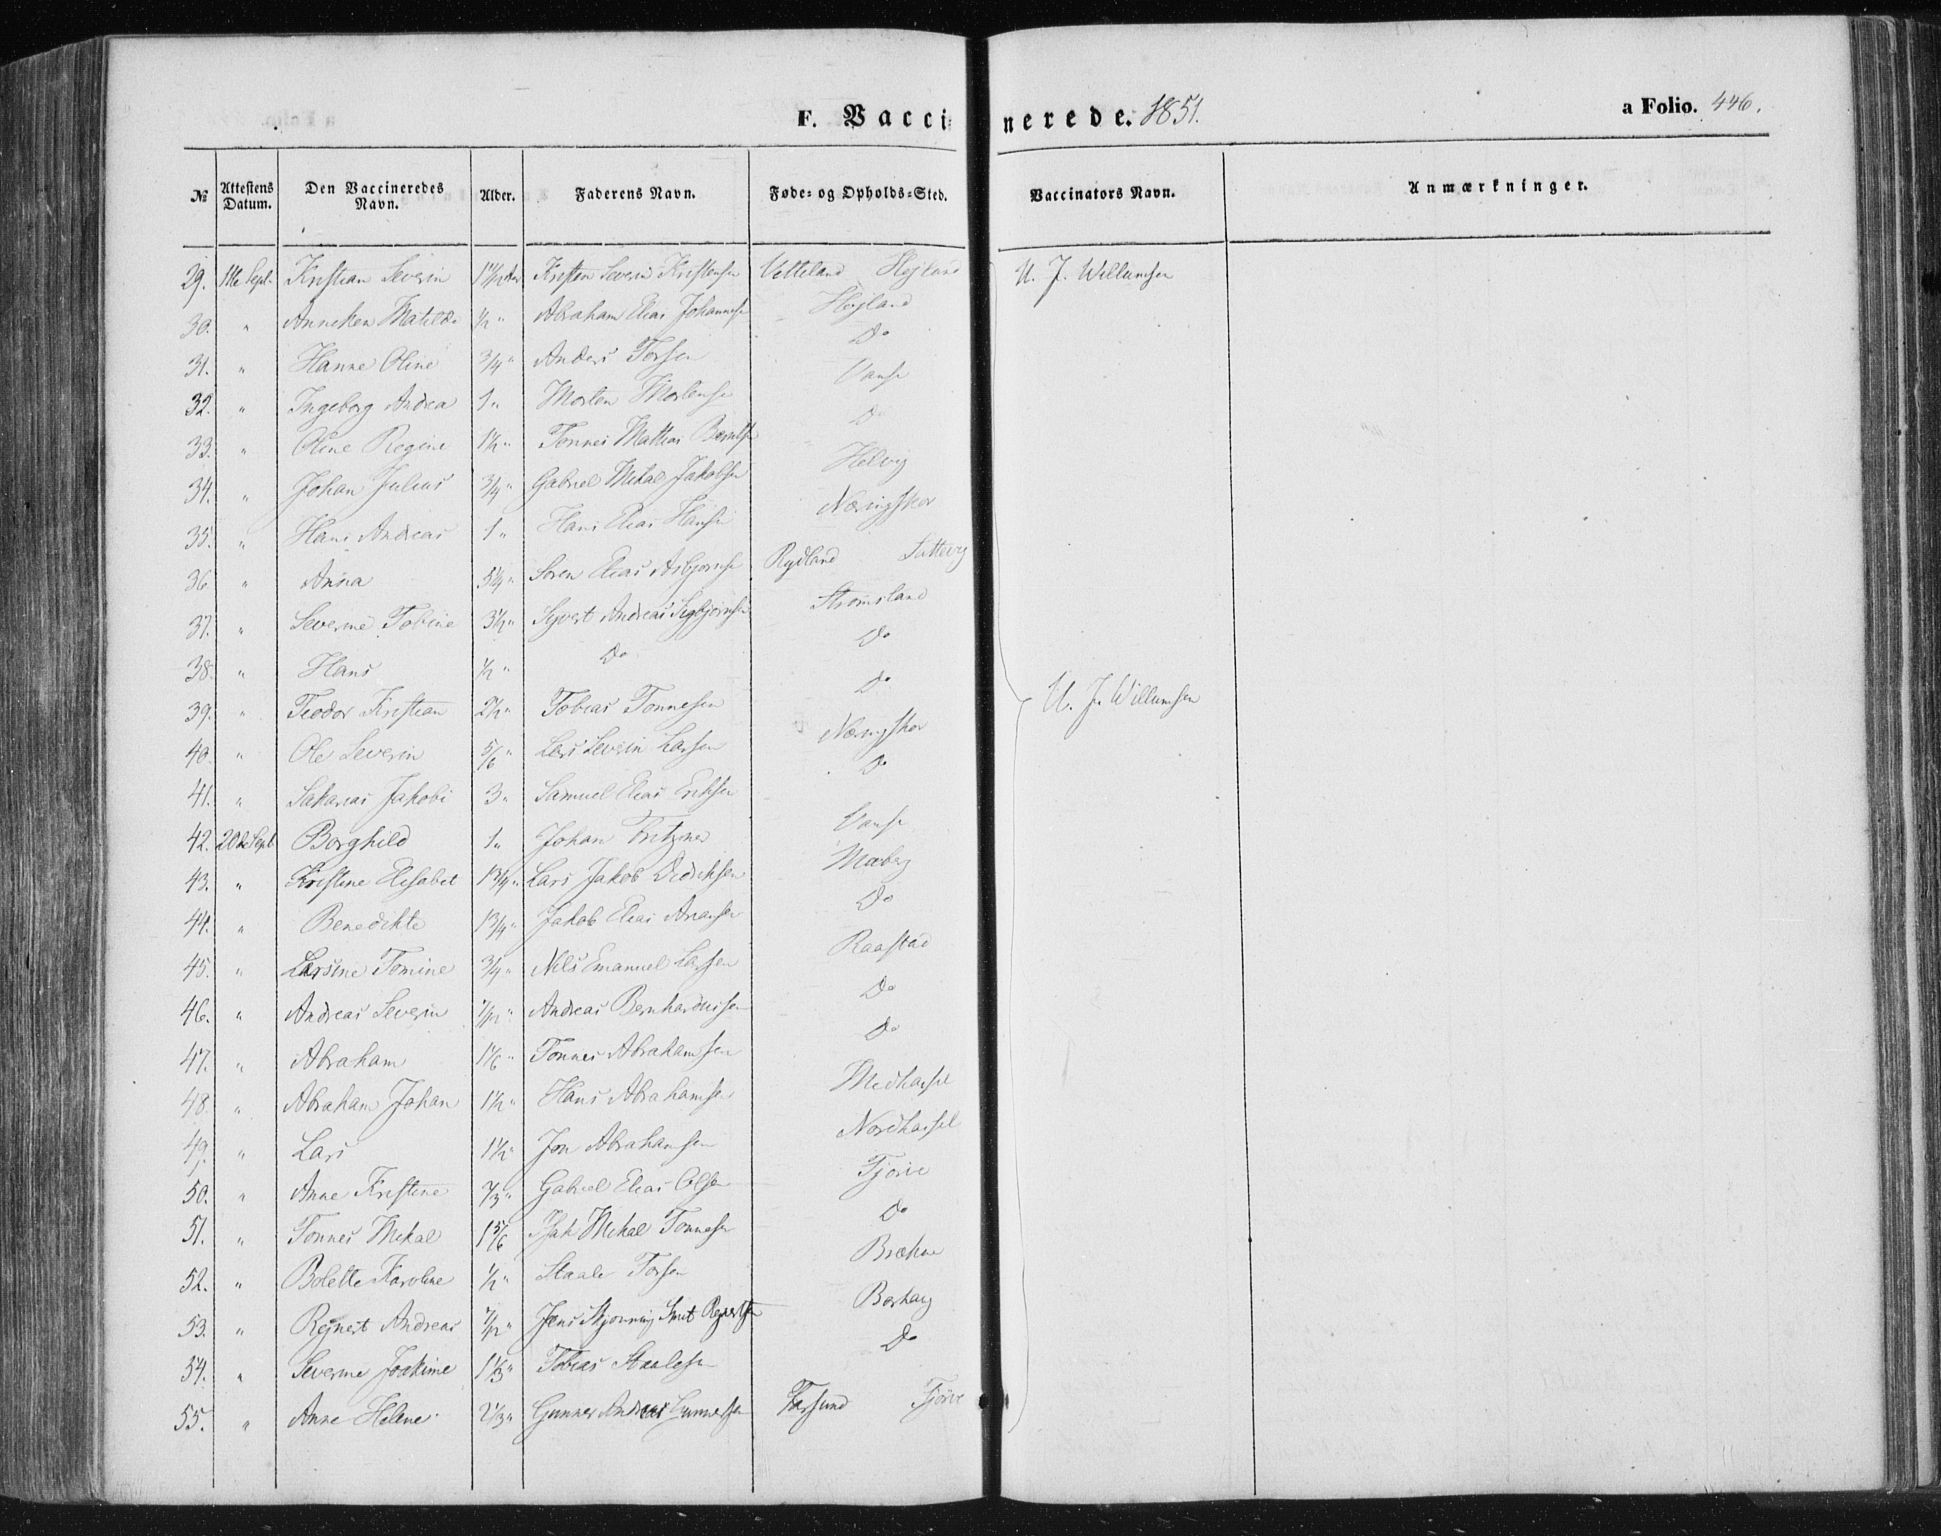 F. Vaccinerede. 1851.
a Folio. 446.
№ Attestens Datum. Den Vaccineredes Navn. Alder. Faderens Navn. Føde- og Opholds-Sted. Vaccinators Navn. Anmærkninger.
29. 11te Sept. Kristian Severin Kristen Severin Kristensen Vetteland Højland U. J. Willumsen
30. " Anneken Matilde ½ " Abraham Elias Johannesen Højland
31. " Hanne Oline 3/4 " Anders Torsen Do
32. " Ingeborg Andrea 1 " Morten Mortensen Vanse
33. " Oline Regine 1½ " Tønnes Mathias Berntsen Do
34. " Johan Julius 3/4 " Gabriel Mikal Jakobsen Helvig
35. " Hans Andreas 1 " Hans Elias Hansen Næringskor
36 " Anna 5¼ " Søren Elias Asbjørnsen Rydland
37. " Severine Tobine 3½ " Syvert Andreas Sigbjørnsen Strømsland
38. " Hans ½ " Do Do
39. " Teodor Kristian 2½ " Tobias Tønnesen Do U. J. Willumsen
40. " Ole Severin 5/6 " Lars Severin Larsen Næringskor
41. " Sakarias Jakobi 3 " Samuel Elias Eriksen Do
42. 20de Sept. Borghild 1 " Johan Fritzner Vanse
43. " Kristine Elisabet 1 3/4 " Lars Jakob Didriksen Maberg
44. " Benedikte 1 3/4 " Jakob Elias Aanensen Do
45. " Larsine Tomine 3/4 " Nils Emanuel Larsen Raastad
46. " Andreas Severin 7/12 " Andreas Bernhardussen Do
47. " Abraham 1 1/6 " Tønnes Abrahamsen Do
48. " Abraham Johan 1½ " Hans Abrahamsen Midhassel
49. " Lars 1½ " Jon Abrahamsen Nordhassel
50. " Anne Kristine " Gabriel Elias Olsen Tjørve
51. " Tønnes Mikal 1 5/6 Isak Mikal Tønnesen Do
52. " Bolette Karoline ½ " Staale Torsen Brækne
53. " Rejnert Andreas 7/12 " Jens Skjønning Smit Rejnertsen Borhaug
54. " Severine Joakime 1 1/3 " Tobias Staalesen Do
55. " Anne Helene 2 1/3 " Gunner Andreas Gunnersen Farsund Tjørve